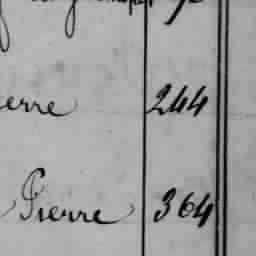 erre 244
Pierre 364